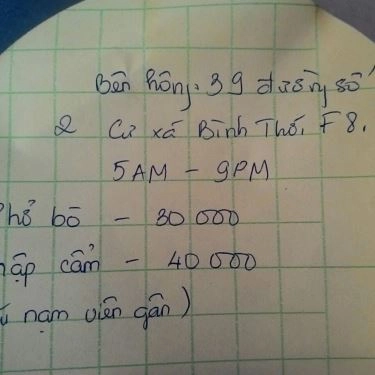 Bên hông. 39 đường số
2 Cư xá Bình Thới, F8.
5AM - 9PM
Phở bò - 30 000
hập cẩm - 40 000
nạm viên gân)